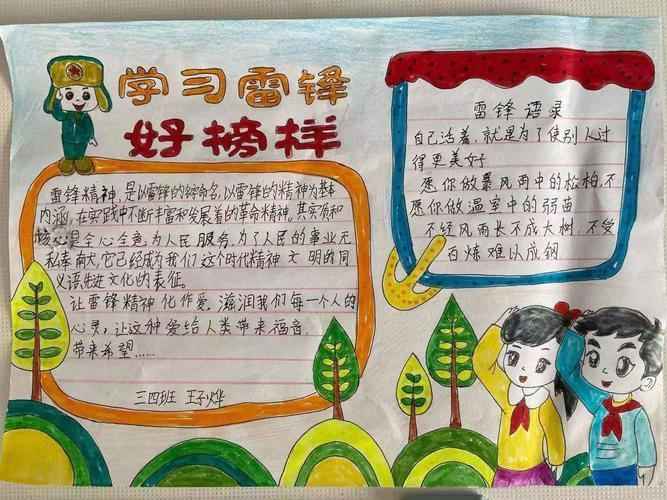 学习雷锋
好榜样
雷锋精神,是以雷锋的名命名,以雷锋的精神为基本
内涵,在实践中不断丰富和发展着的革命精神,其实质和
核心是全心全意为人民服务,为了人民的事业无
私奉献,它已经成为我们这个时代精神文明的同
义语先进文化的表征。
让雷锋精神化作爱,滋润我们每一个人的
心灵,让这种爱给人类带来福音
带来希望……
三四班 王子烨
雷锋语录
自己活着,就是为了使别人过
得更美好
愿你做暴风雨中的松柏,不
愿你做温室中的弱苗
不经风雨长不成大树,不受
百炼难以成钢